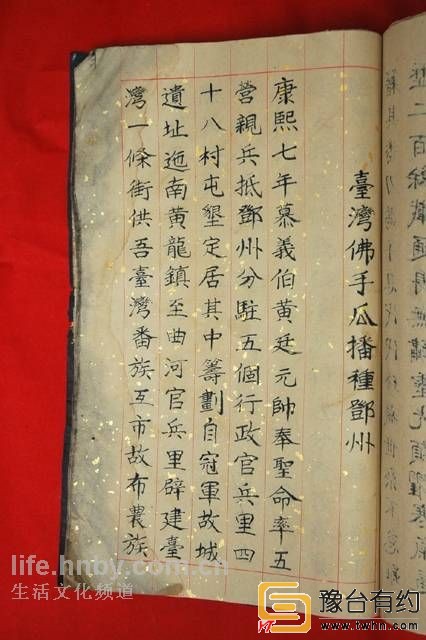 臺灣佛手瓜播種鄧州
康熙七年慕義伯黃廷元帥奉聖命率五
營親兵抵鄧州分駐五個行政官兵里四
十八村屯墾定居其中籌劃自冠軍故城
遺址迤南黃龍鎮至曲河官兵里辟建臺
灣一條街供吾臺灣番族互市故布農族
life.hnby.com.cn
生活文化频道
豫台有约
www.twhn.com